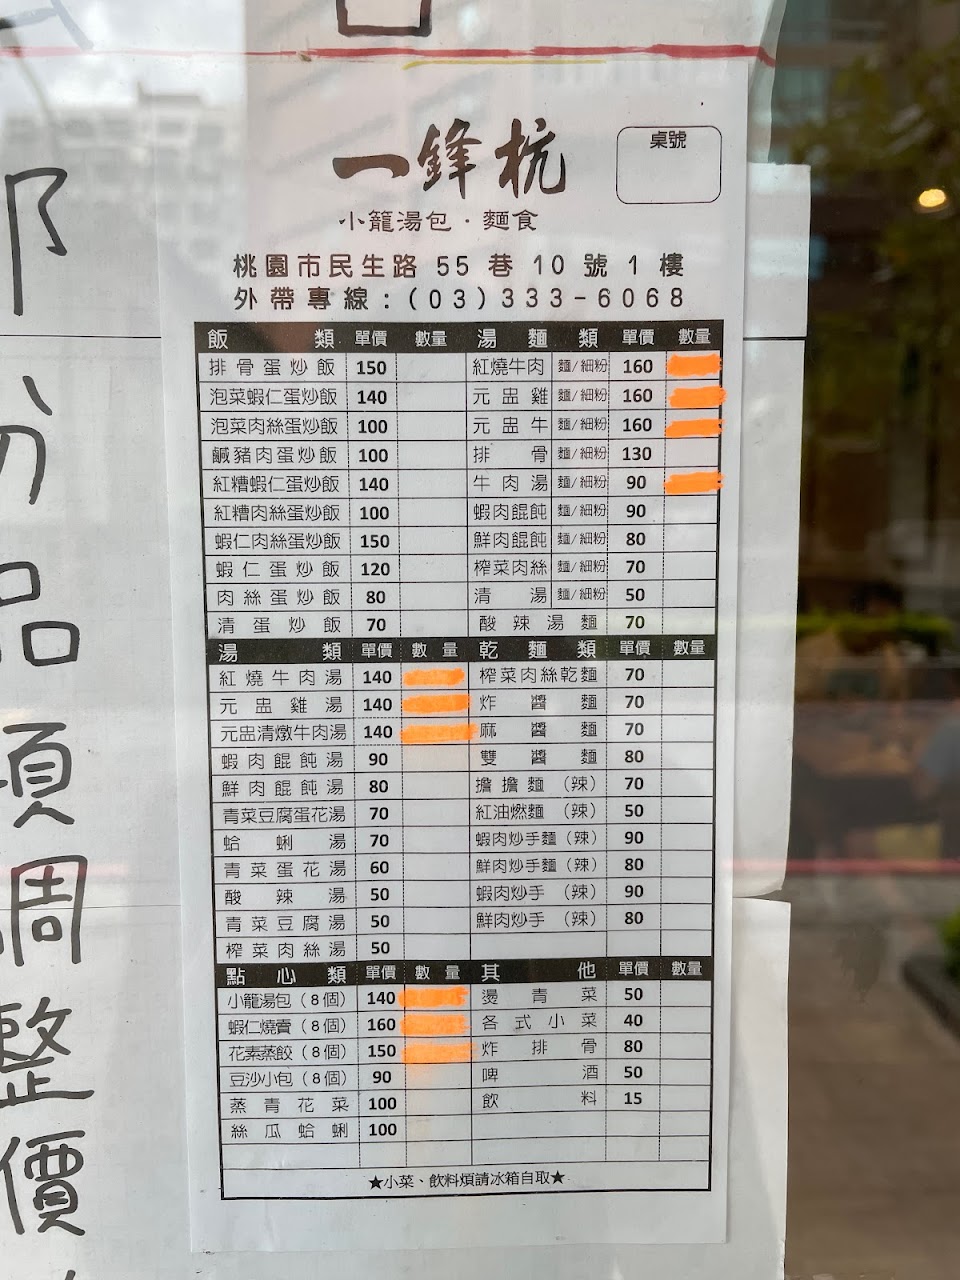 一鋒杭
桌號
小籠湯包·麵食
桃園市民生路 55 巷 10 號 1 樓
外帶專線:(03)333-6068
飯類 單價 數量 湯麵類 單價 數量
排骨蛋炒飯 150 紅燒牛肉 麵/細粉 160
泡菜蝦仁蛋炒飯 140 元盅雞 麵/細粉 160
泡菜肉絲蛋炒飯 100 元盅牛 麵/細粉 160
鹹豬肉蛋炒飯 100 排骨 麵/細粉 130
紅糟蝦仁蛋炒飯 140 牛肉湯 麵/細粉 90
紅糟肉絲蛋炒飯 100 蝦肉餛飩 麵/細粉 90
蝦仁肉絲蛋炒飯 150 鮮肉餛飩 麵/細粉 80
蝦仁蛋炒飯 120 榨菜肉絲 麵/細粉 70
肉絲蛋炒飯 80 清湯 麵/細粉 50
清蛋炒飯 70 酸辣湯麵 70
湯類 單價 數量 乾麵類 單價 數量
紅燒牛肉湯 140 榨菜肉絲乾麵 70
元盅雞湯 140 炸醬麵 70
元盅清燉牛肉湯 140 麻醬麵 70
蝦肉餛飩湯 90 雙醬麵 80
鮮肉餛飩湯 80 擔擔麵(辣) 70
青菜豆腐蛋花湯 70 紅油燃麵(辣) 50
蛤蜊湯 70 蝦肉炒手麵(辣) 90
青菜蛋花湯 60 鮮肉炒手麵(辣) 80
酸辣湯 50 蝦肉炒手(辣) 90
青菜豆腐湯 50 鮮肉炒手(辣) 80
榨菜肉絲湯 50
點心類 單價 數量 其他 單價 數量
小籠湯包(8個) 140 燙青菜 50
蝦仁燒賣(8個) 160 各式小菜 40
花素蒸餃(8個) 150 炸排骨 80
豆沙小包(8個) 90 啤酒 50
蒸青花菜 100 飲料 15
絲瓜蛤蜊 100
★小菜、飲料煩請冰箱自取★
品項調整價